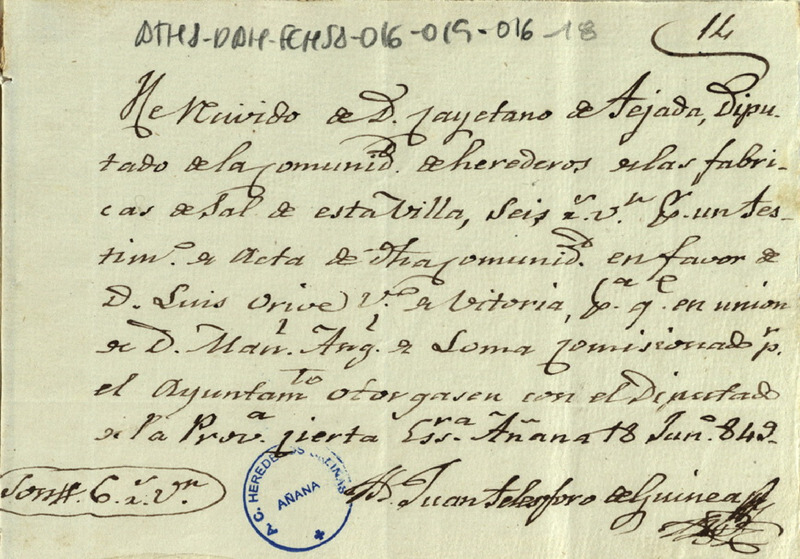 ATHA-DAH-FCHSA-016-019-016-18
12
He Recivido de D. Cayetano de Tejada, Dipu-
tado de la Comunid. de herederos de las fabri-
cas de Sal de esta Villa, Seis r.s v.n p.r un Tes-
tim.o de Acta de dha Comunid. en favor de
D. Luis Orive V.o de Vitoria, p.a q.e en union
de D. Man.l Ang.l de Loma Comisionado p.r
el Ayuntam.to otorgasen con el Diputado
de la Prov.a cierta Ess.ra Añana 18 Jun.o 849.
Son # 6 r.s v.n
Juan Telesforo de Guinea
A.C. HEREDEROS SALINAS
AÑANA